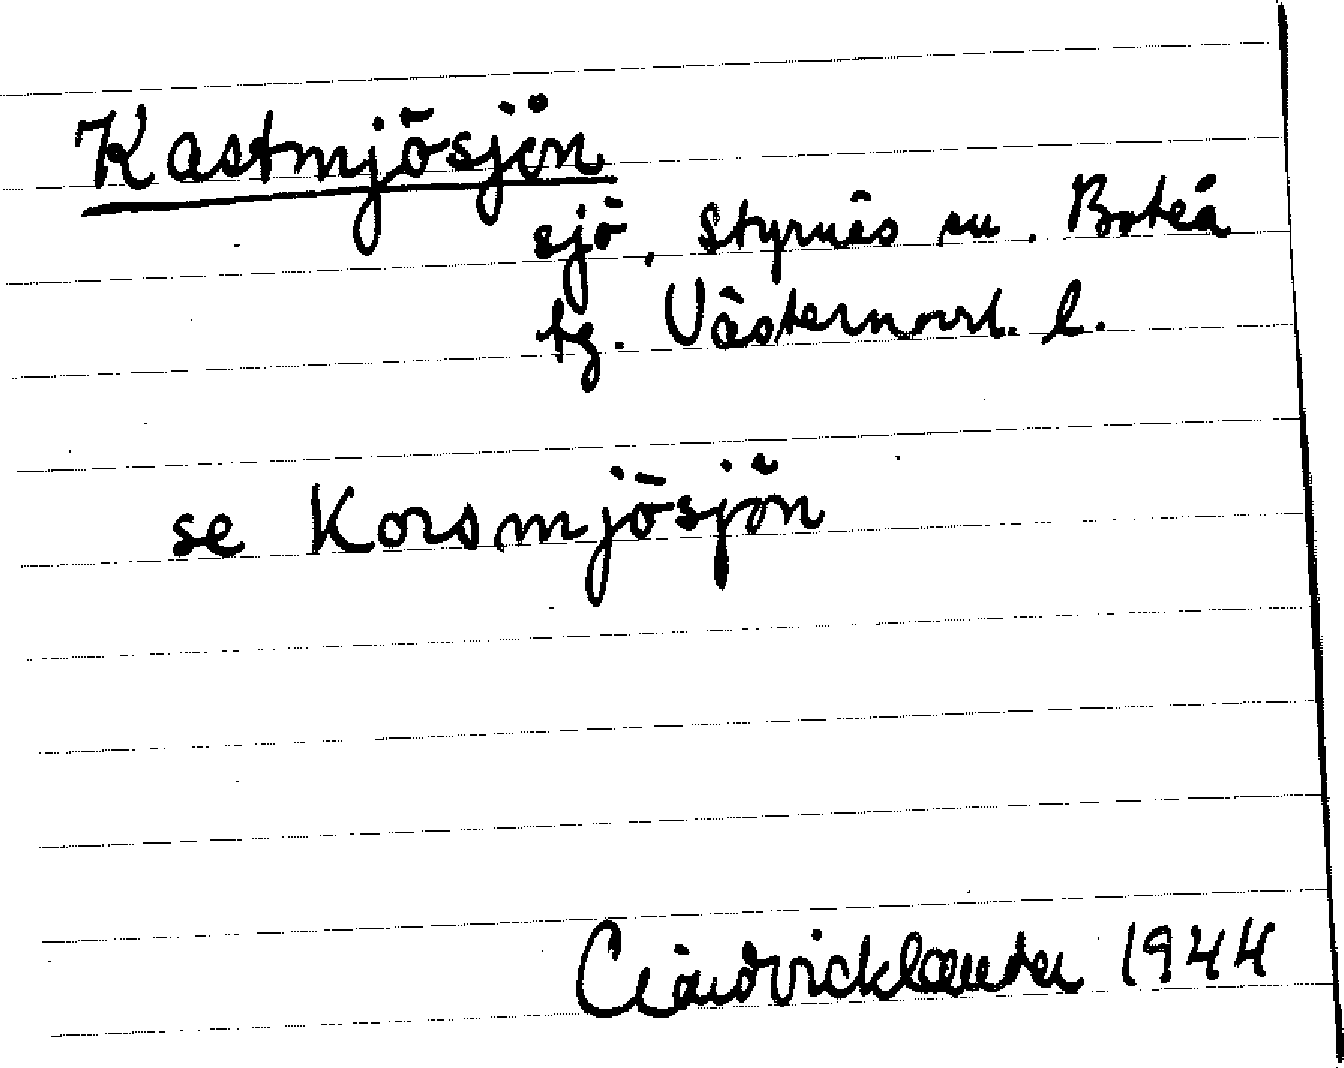 Kastmjösjön
sjö, Styrnäs sn. Boteå
tg. Västernorrl. l.
se Korsmjösjön
1944